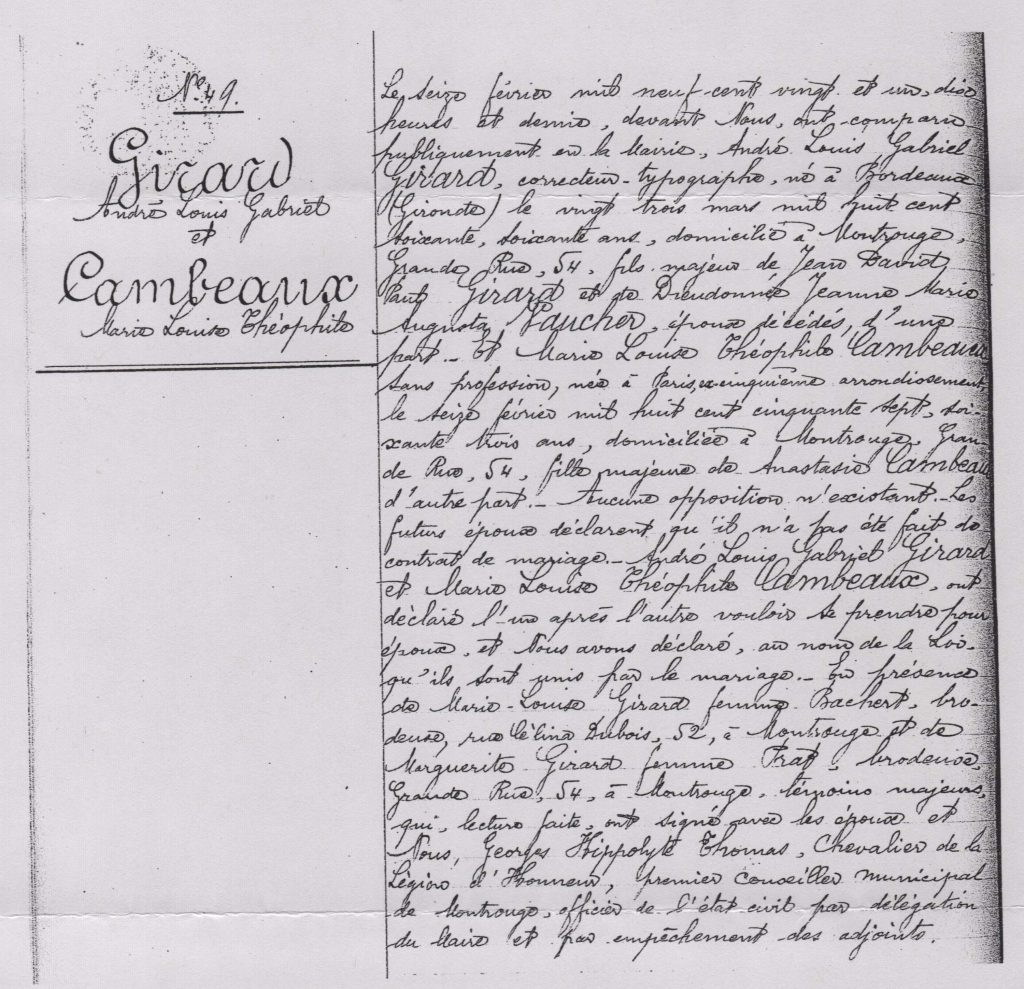 N° 49.
Girard
André Louis Gabriel
et
Cambeaux
Marie Louise Théophile
Le seize février mil neuf cent vingt et un, dix
heures et demie, devant Nous, ont comparu
publiquement en la Mairie, André Louis Gabriel
Girard, correcteur-typographe, né à Bordeaux
(Gironde) le vingt trois mars mil huit cent
soixante, soixante ans, domicilié à Montrouge,
Grande Rue, 54, fils majeur de Jean David
Paul Girard et de Dieudonnée Jeanne Marie
Augusta Faucher, époux décédés, d'une
part. – Et Marie Louise Théophile Cambeaux
sans profession, née à Paris, cinquième arrondissement,
le seize février mil huit cent cinquante sept, soi-
xante trois ans, domiciliée à Montrouge, Gran-
de Rue, 54, fille majeure de Anastasie Cambeau
d'autre part. – Aucune opposition n'existant. – Les
futurs époux déclarent qu'il n'a pas été fait de
contrat de mariage. – André Louis Gabriel Girard
et Marie Louise Théophile Cambeaux, ont
déclaré l'un après l'autre vouloir se prendre pour
époux, et Nous avons déclaré, au nom de la Loi,
qu'ils sont unis par le mariage. – En présence
de Marie-Louise Girard femme Bachert, bro-
deuse, rue Célina Dubois, 52, à Montrouge et de
Marguerite Girard femme Prat, brodeuse,
Grande Rue, 54, à Montrouge, témoins majeurs,
qui, lecture faite, ont signé avec les époux et
Nous, Georges Hippolyte Thomas, Chevalier de la
Légion d'Honneur, premier Conseiller municipal
de Montrouge, officier de l'état civil par délégation
du Maire et par empêchement des adjoints.